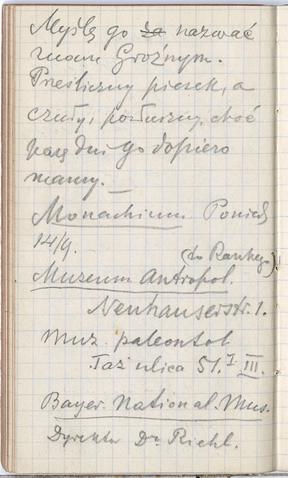 Myślę go za nazwać
Iwanem Groźnym.
Prześliczny piesek, a
czuły, posłuszny, choć
parę dni go dopiero
mamy.—
Monachium Poniedz
14/9.
(do Rankego)!
Muzeum Antropol.
Neuhauserstr. 1.
Muz. paleontol.
Taż ulica 51. I III.
Bayer. National. Mus.
Dyrektor Dr. Riehl.